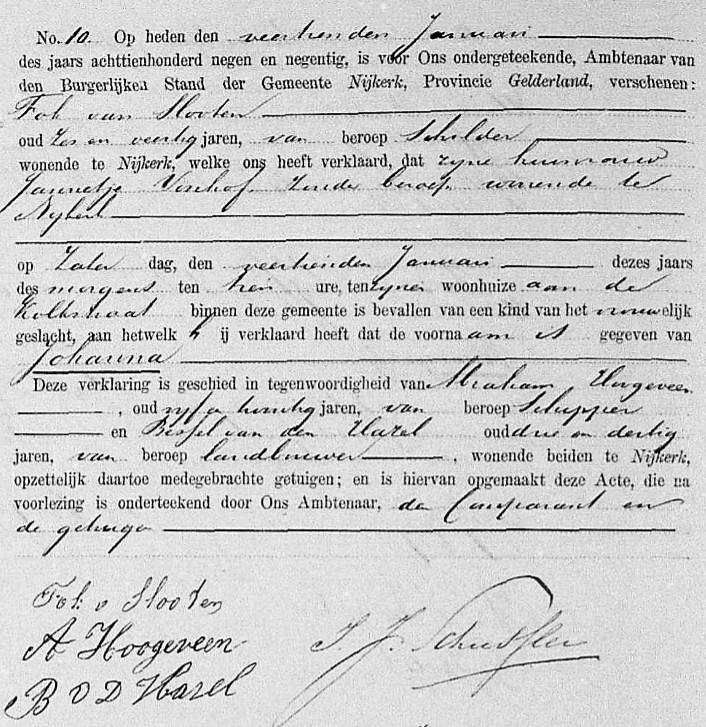 No. 10. Op heden den veertienden Januari
des jaars achttienhonderd negen en negentig, is voor Ons ondergeteekende, Ambtenaar van
den Burgerlijken Stand der Gemeente Nijkerk, Provincie Gelderland, verschenen:
Fok van Slooten
oud zes en veertig jaren, van beroep Schilder
wonende te Nijkerk, welke ons heeft verklaard, dat zijne huisvrouw
Jannetje Vinhof zonder beroep wonende te
Nijkerk
op Zater dag, den veertienden Januari dezes jaars
des morgens ten tien ure, ten zijnen woonhuize aan de
Kolkstraat binnen deze gemeente is bevallen van een kind van het vrouwelijk
geslacht, aan hetwelk hij verklaard heeft dat de voorna am is gegeven van
Johanna
Deze verklaring is geschied in tegenwoordigheid van Abraham Hoogeveen
, oud jaren, van beroep Schipper
en Bessel van den Hazel oud drie en dertig
jaren, van beroep landbouwer , wonende beiden te Nijkerk,
opzettelijk daartoe medegebrachte getuigen; en is hiervan opgemaakt deze Acte, die na
voorlezing is onderteekend door Ons Ambtenaar, de Comparant en
de getuigen
Fok v Slooten
A Hoogeveen
B V D Hazel